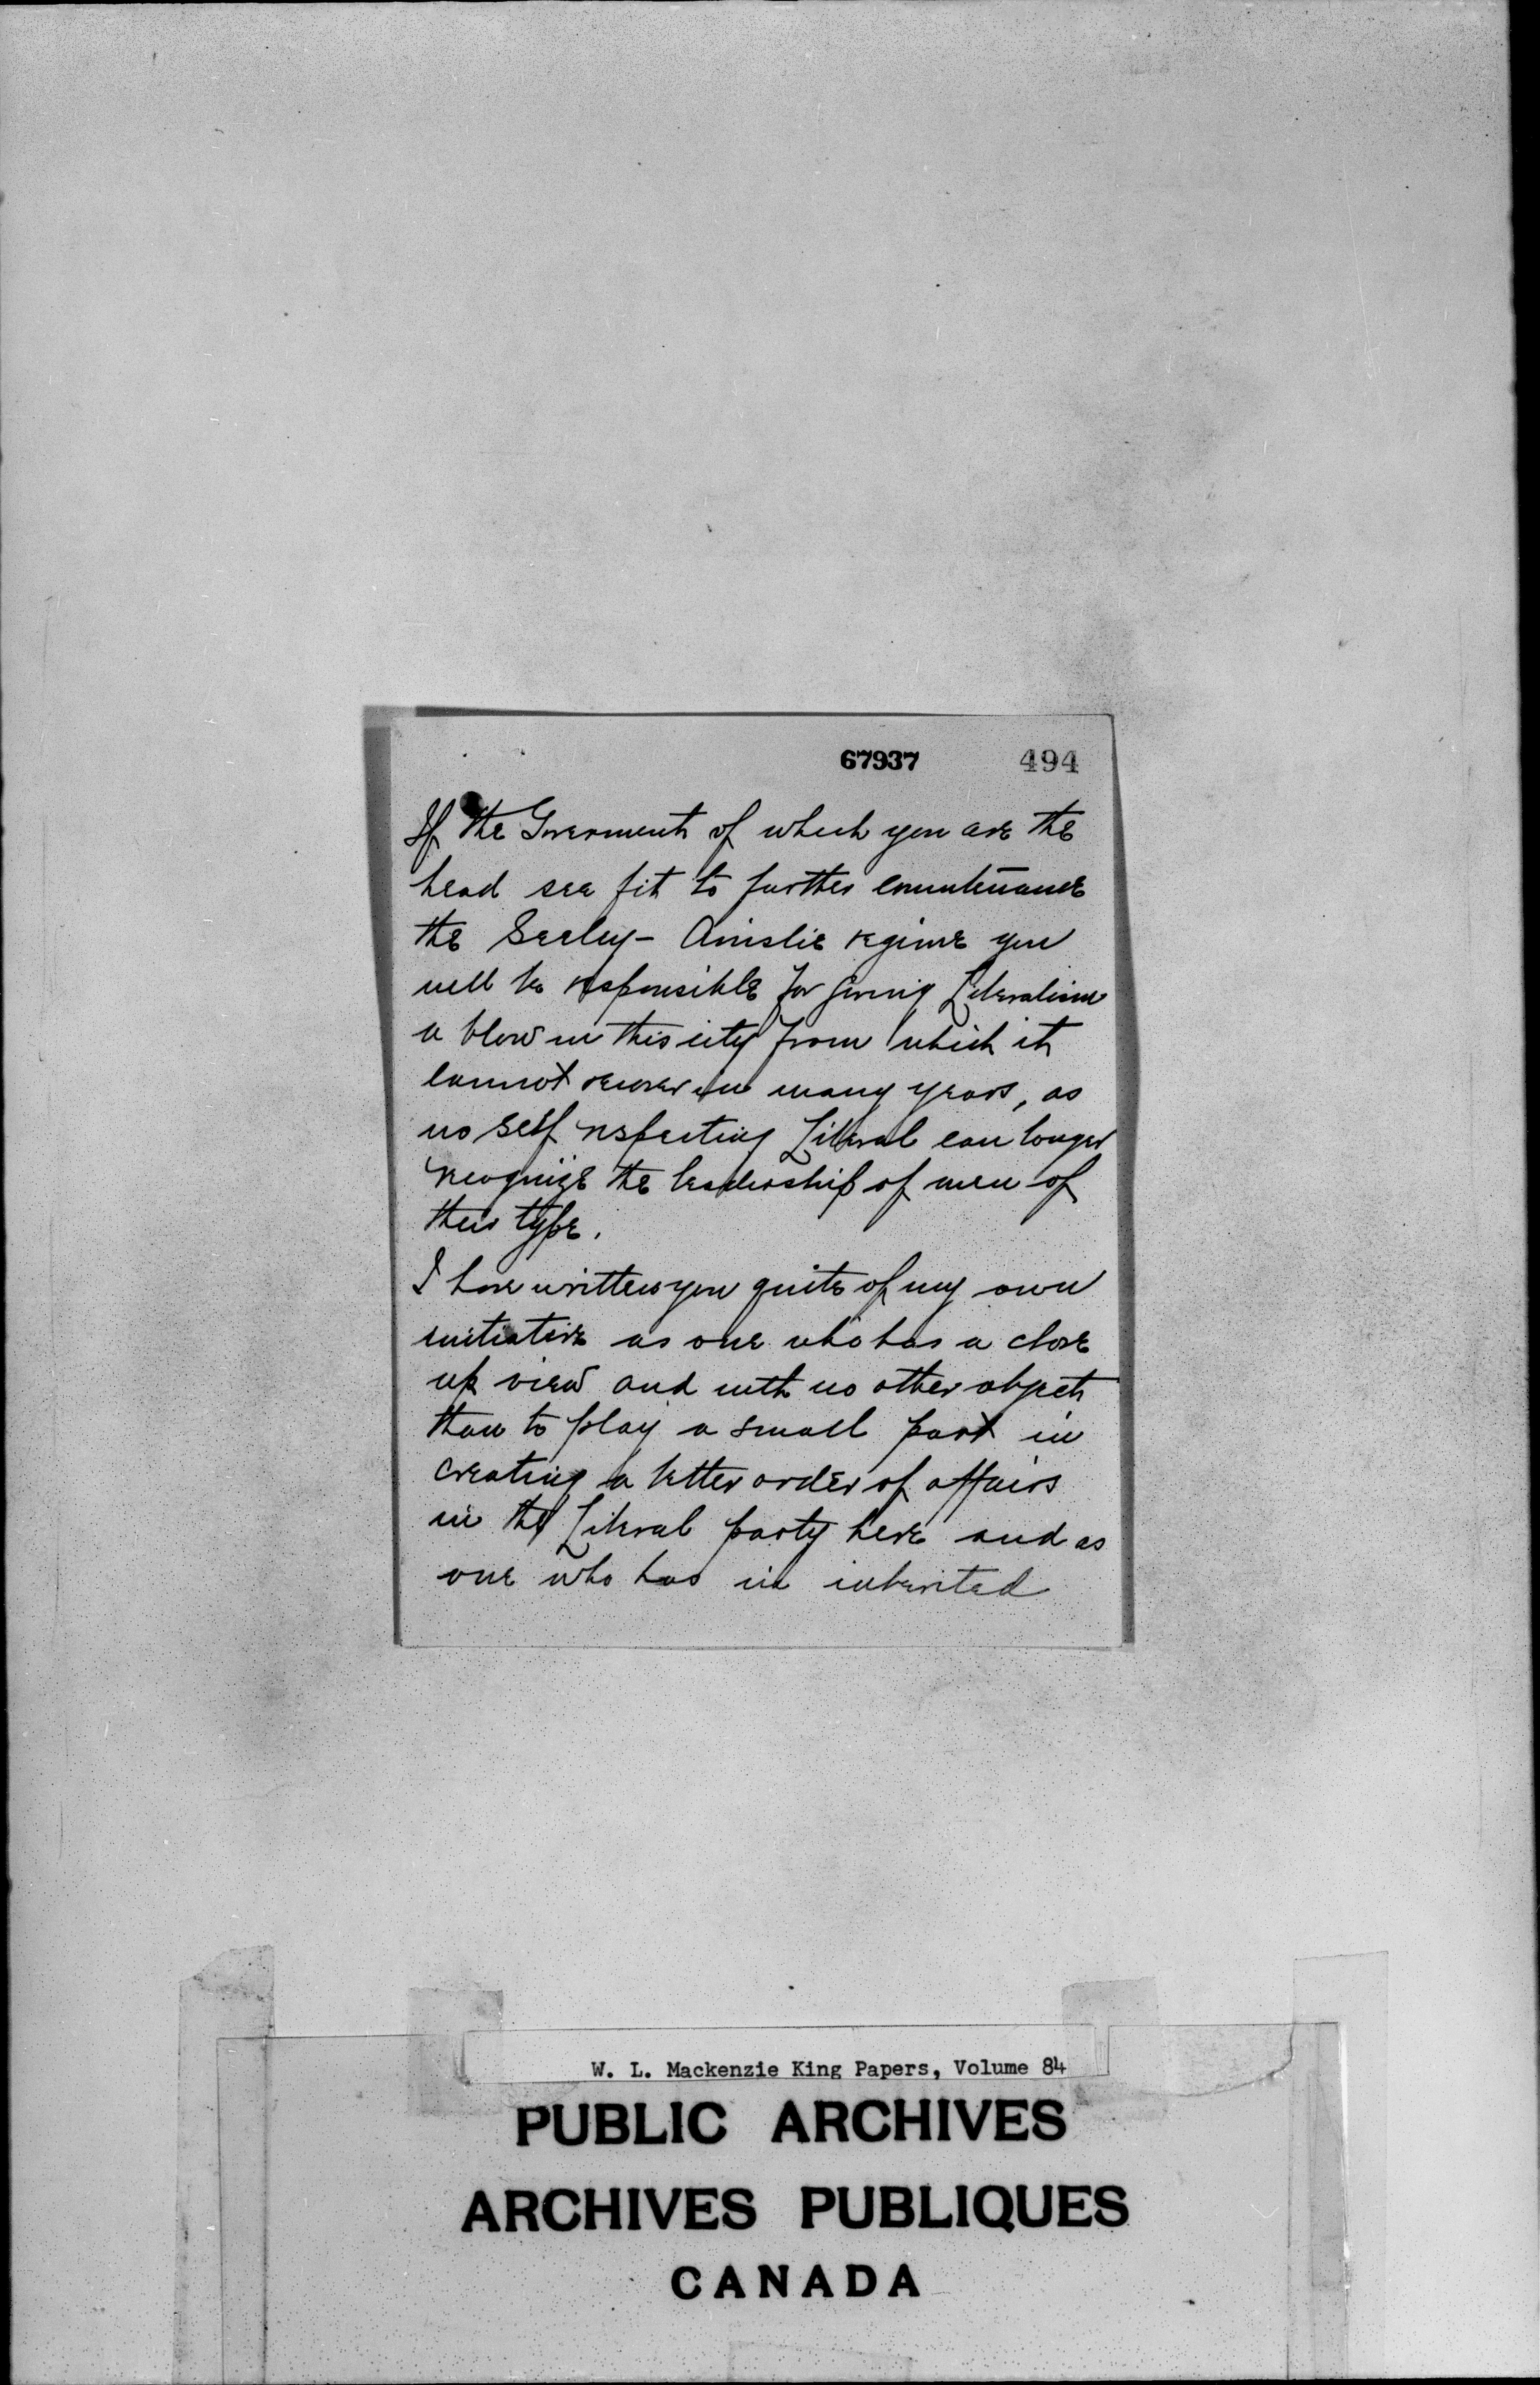 67937 494
If the Goverment of which you are the
head see fit to further countenance
the Seeley - Ainslie regime you
will be responsible for giving Liberalism
a blow in this city from which it
cannot recover in many years, as
no self respecting Liberal can longer
recognize the leadership of men of
their type.
I have written you quite of my own
initiative as one who has a close
up view and with no other object
than to play a small part in
creating a better order of affairs
in the Liberal party here and as
one who has in inherited
W. L. Mackenzie King Papers, Volume 84
PUBLIC ARCHIVES
ARCHIVES PUBLIQUES
CANADA